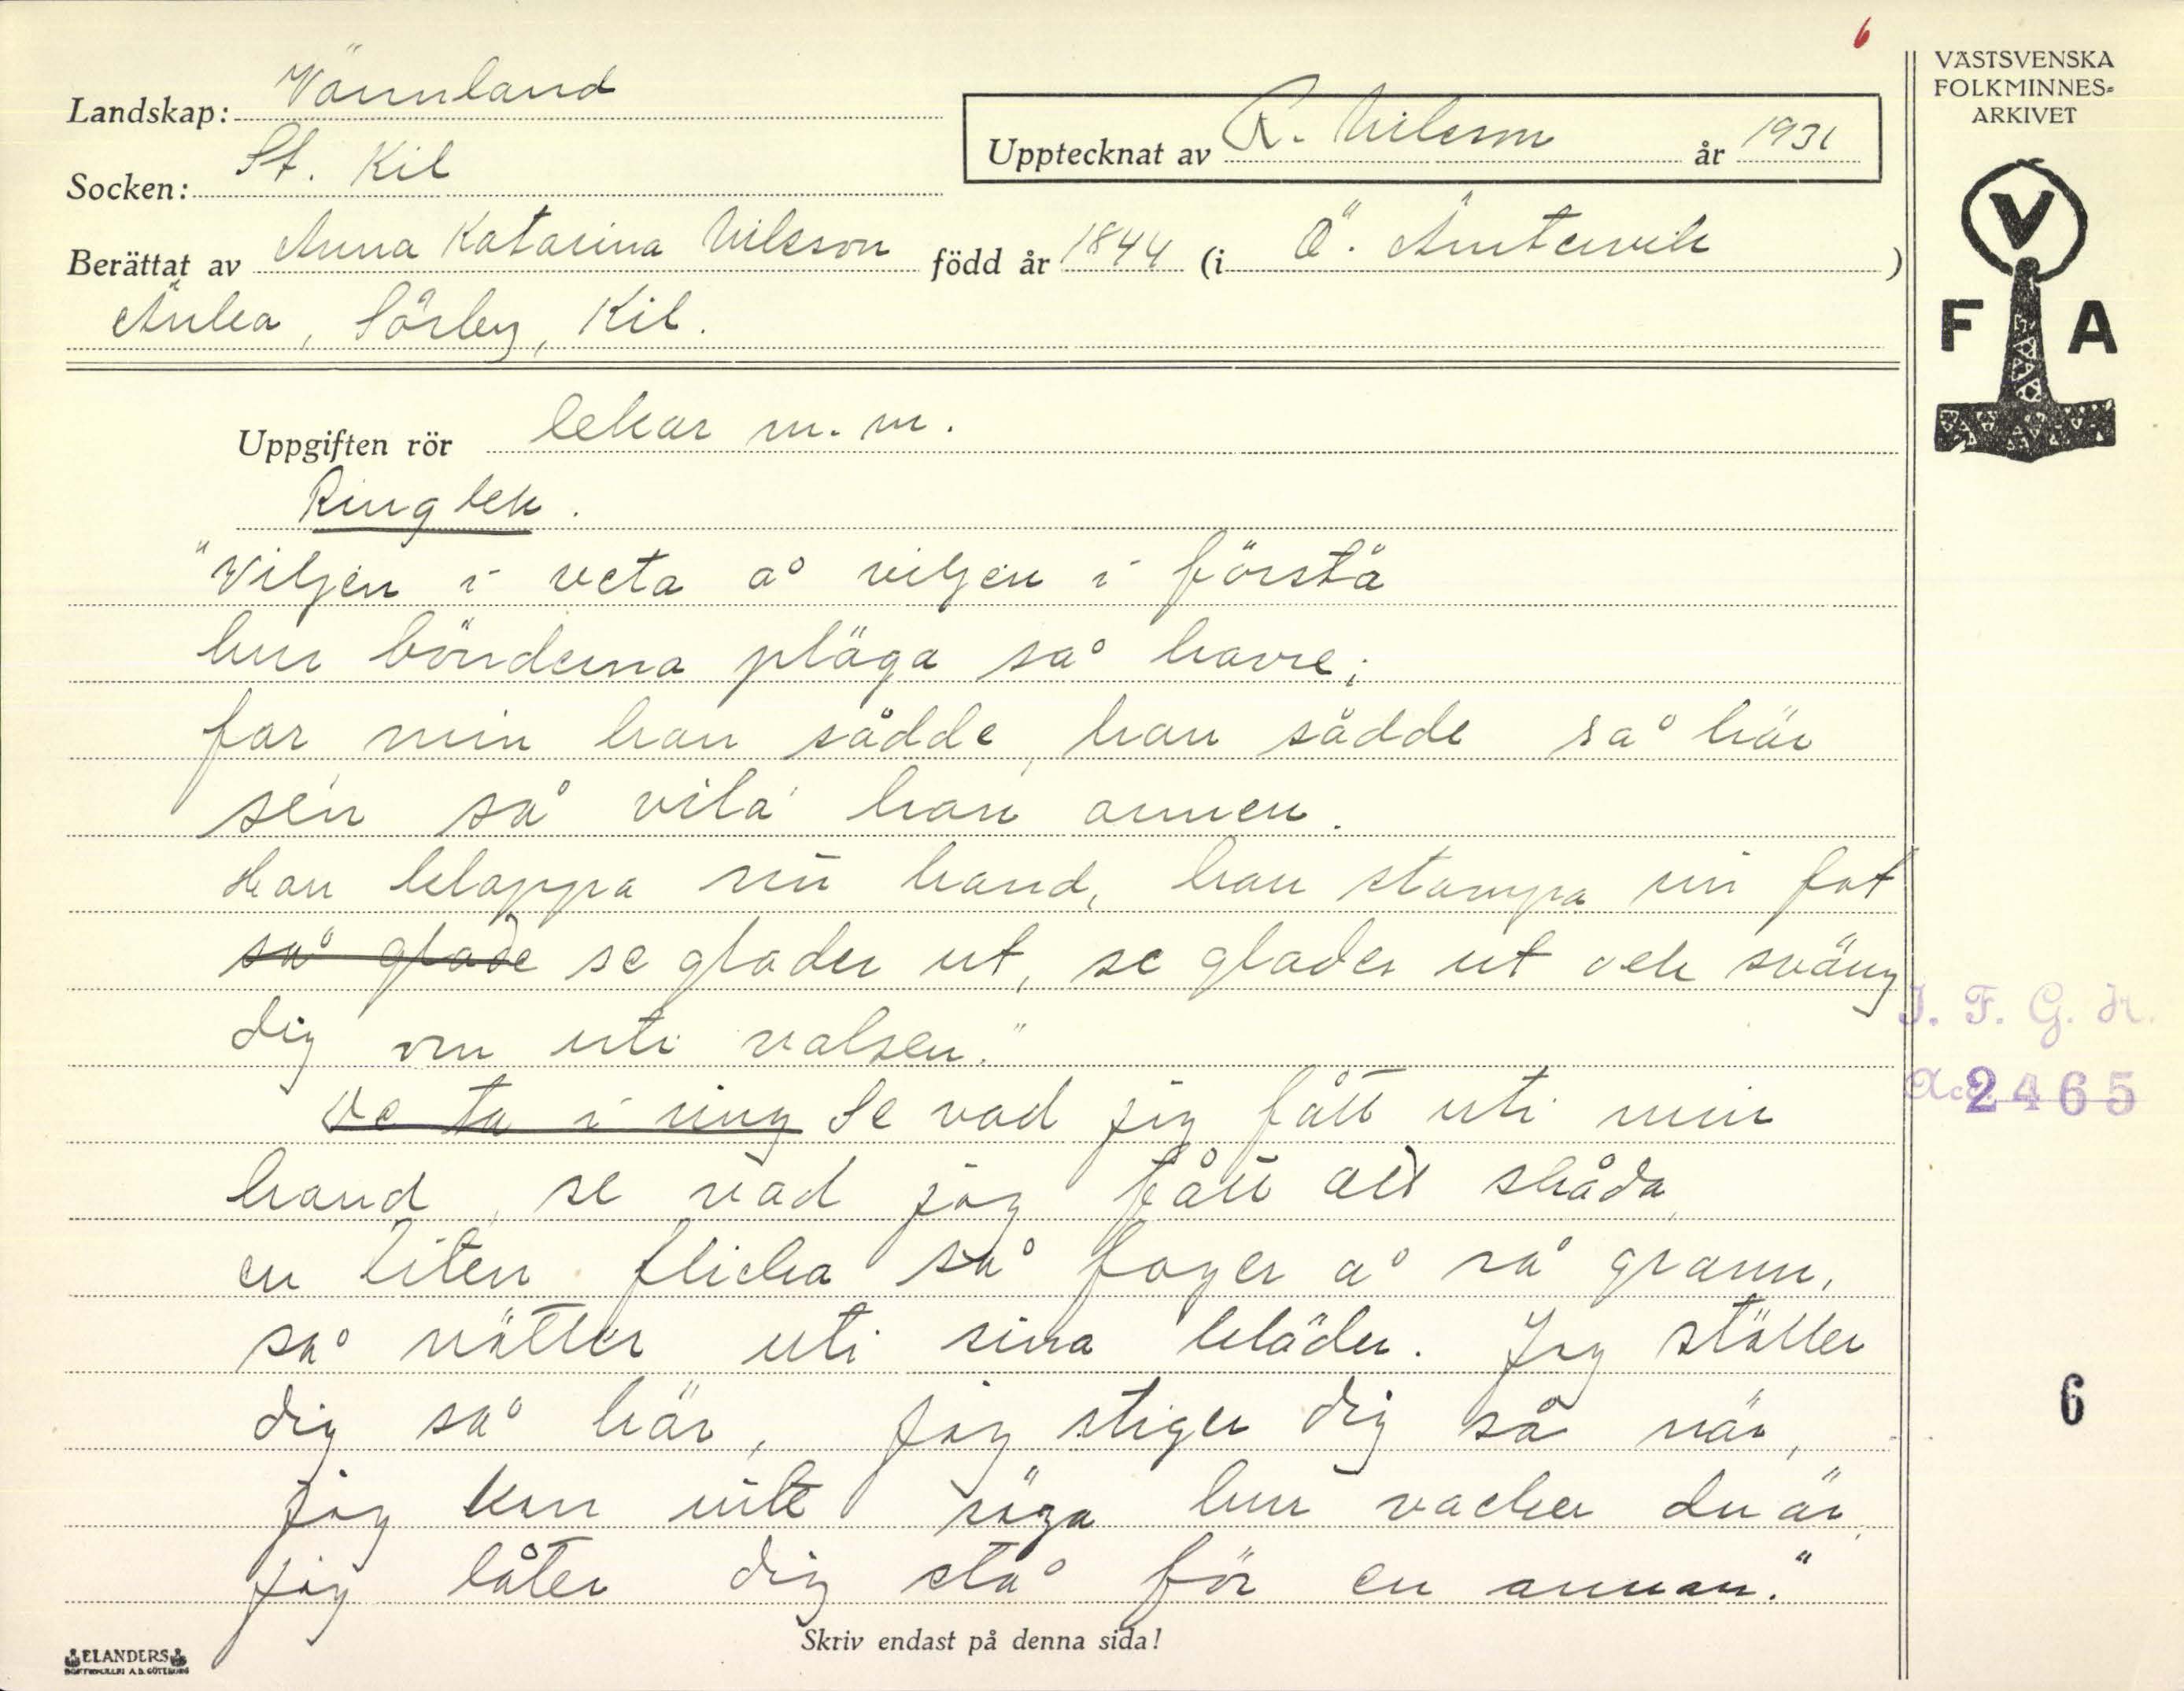 6
VÄSTSVENSKA
FOLKMINNES=
ARKIVET
Landskap: Värmland
Upptecknat av R. Nilsson år 1931
Socken: St. Kil
Berättat av Anna Katarina Nilsson född år 1844 (i Ö. Ämtervik)
Sörby, Kil.
V
F A
Uppgiften rör lekar m. m.
Ringlek.
"Viljen i veta å viljen i förstå
hur bönderna pläga så havre;
far min han sådde, han sådde så här
sen så vila' han armen.
Han klappa sin hand, han stampa sin fot
så glade se glader ut, se glader ut och sväng
dig om uti valsen."
De ta i ring Se vad jag fått uti min
hand, se vad jag fått att skåda,
en liten flicka så fager å så grann,
så nätter uti sina kläder. Jag ställer
dig så här, jag stiger dig så när,
jag kan inte säga hur vacker du är,
jag låter dig stå för en annan."
I. F. G. H.
Acc. 2465
6
Skriv endast på denna sida!
ELANDERS
BOKTRYCKERI A.B. GÖTEBORG